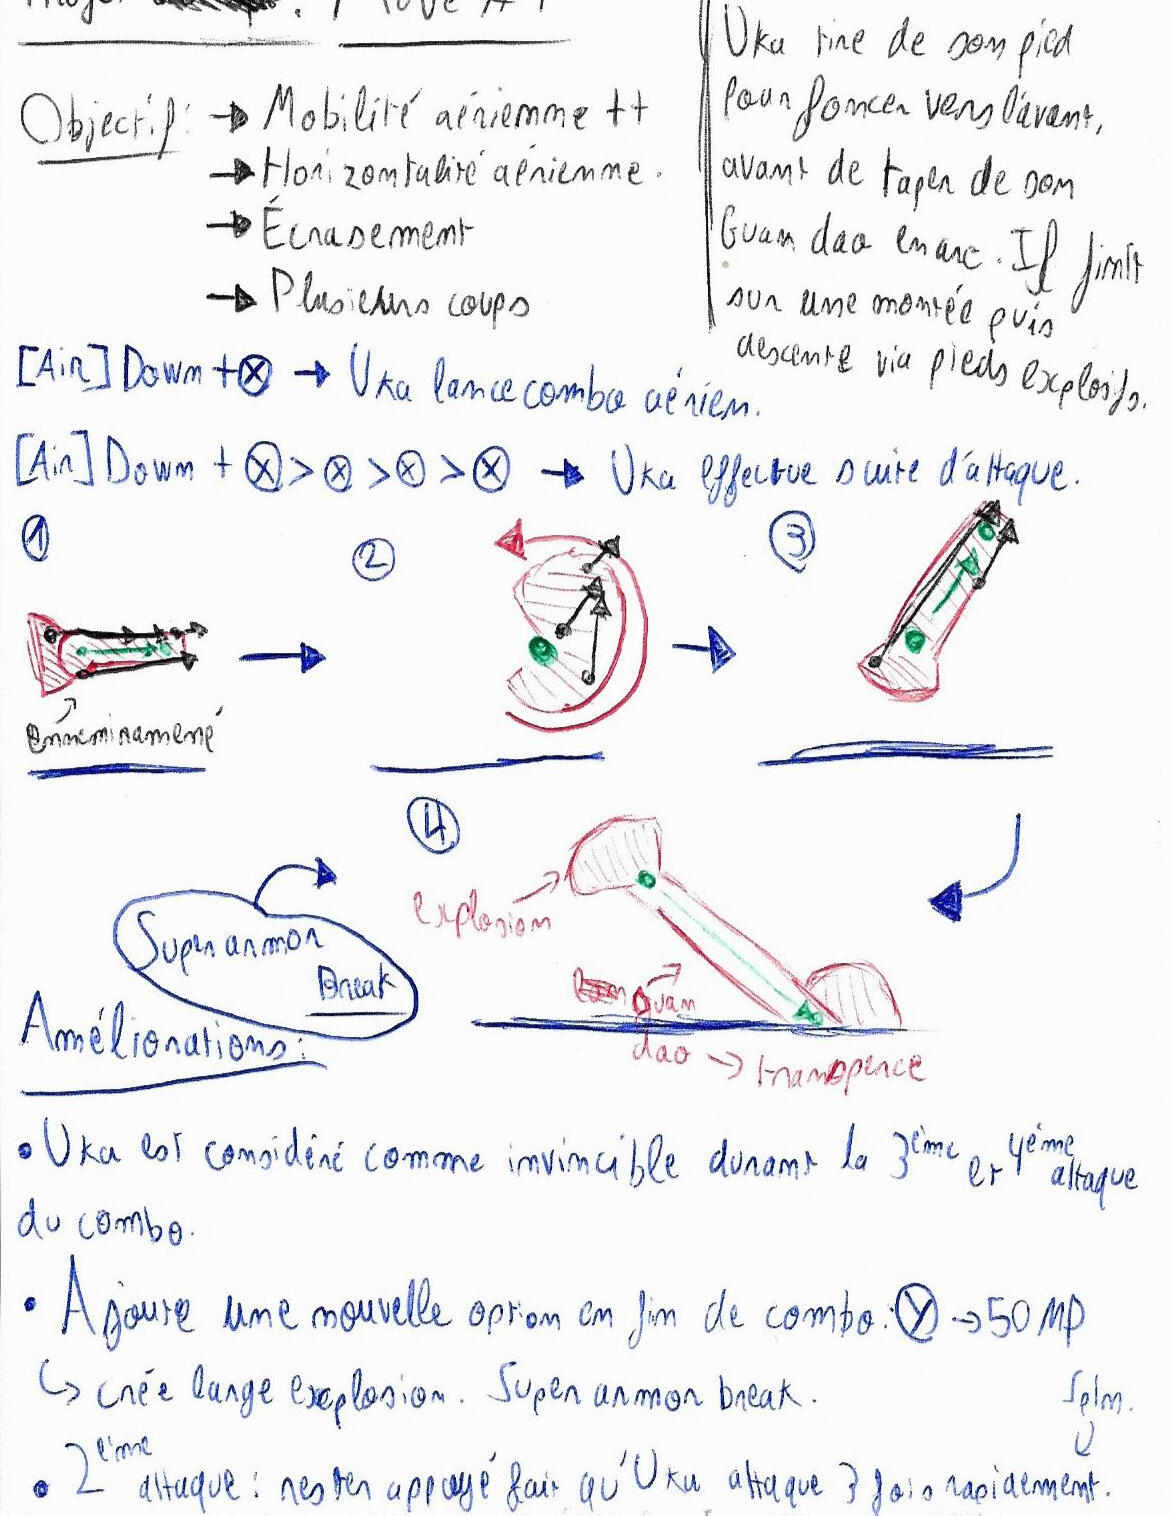 Objectif: → Mobilité aérienne ++
→ Horizontalité aérienne.
→ Écrasement
→ Plusieurs coups
Uka tire de son pied
pour foncer vers l'avant,
avant de taper de son
Guan dao en arc. Il finit
sur une montée puis
descente via pieds explosifs.
[Air] Down + Ⓧ → Uka lance combo aérien.
[Air] Down + Ⓧ > Ⓧ > Ⓧ > Ⓧ → Uka effectue suite d'attaque.
① ② ③
ennemi ramené
④
explosion
Super armor
Break
Guan
dao → transperce
Améliorations:
• Uka est considéré comme invincible durant la 3ème et 4ème attaque
du combo.
• Ajoute une nouvelle option en fin de combo: Ⓨ → 50 MP
↳ crée large explosion. Super armor break.
• 2ème attaque: rester appuyé fait qu'Uka attaque 3 fois rapidement.